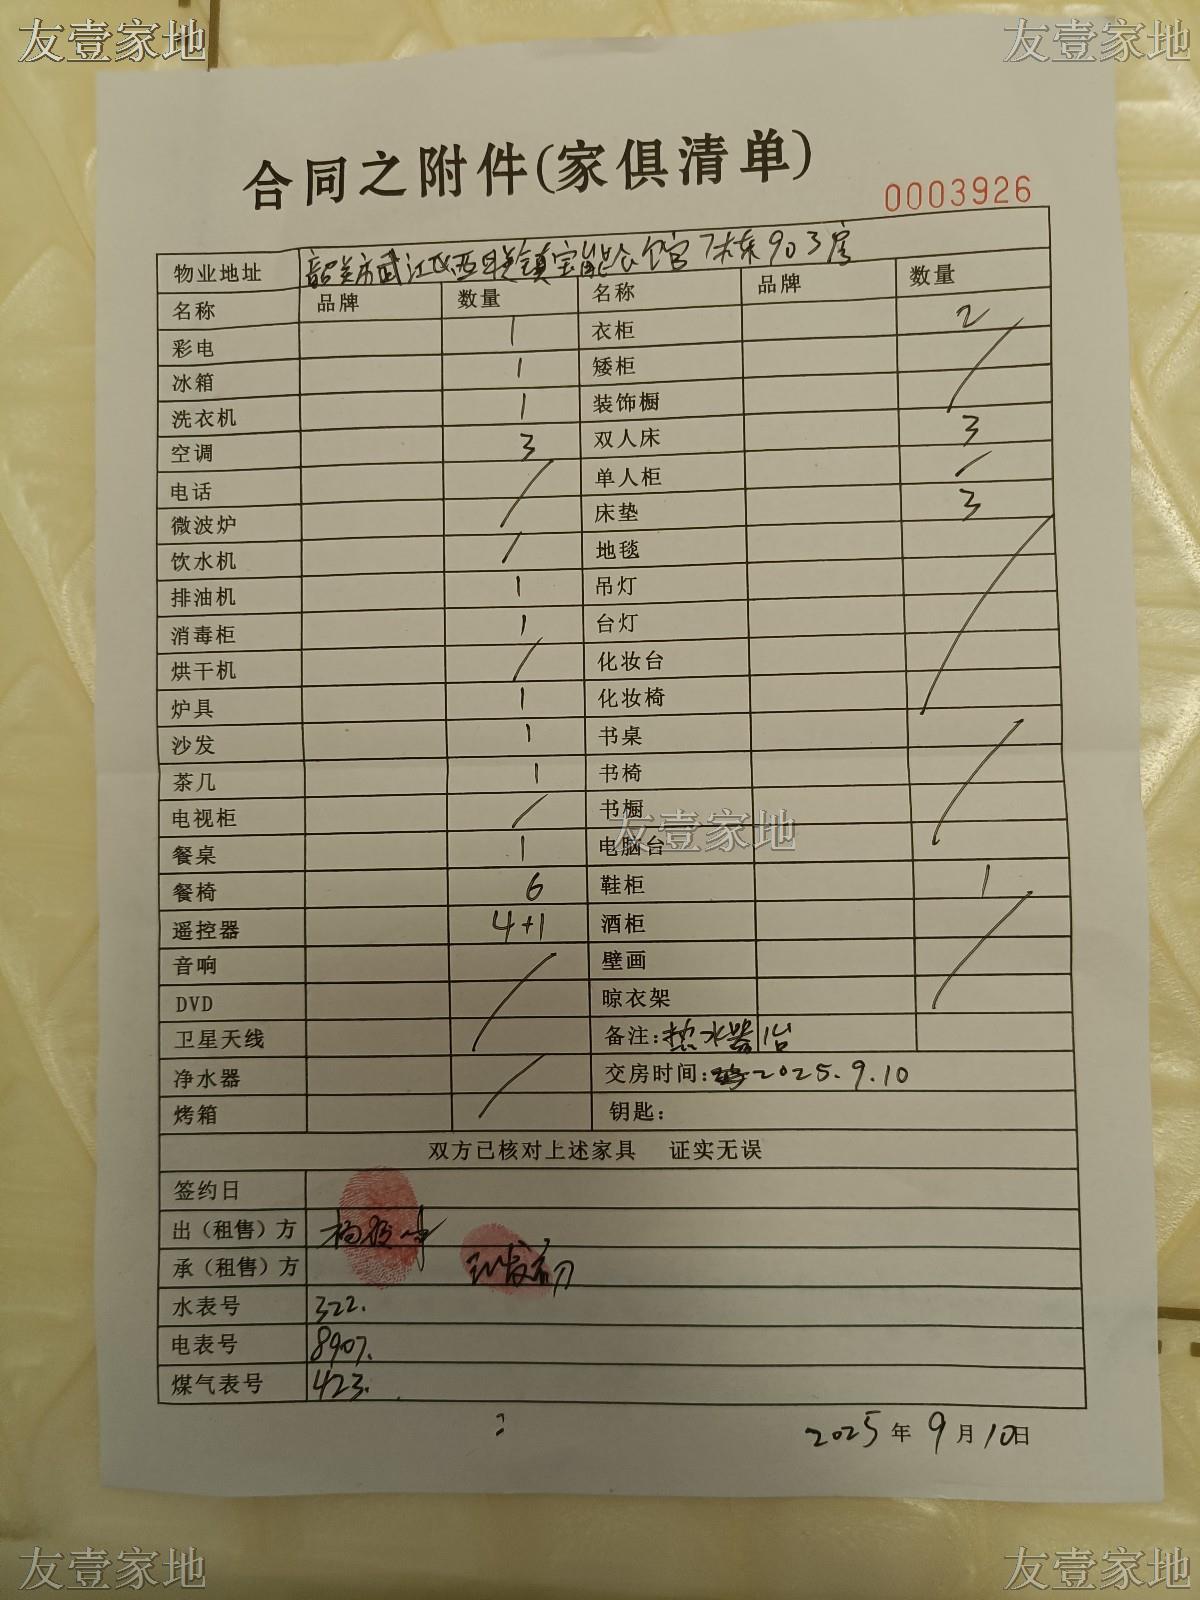 友壹家地 友壹家地
合同之附件(家俱清单)
0003926
物业地址 韶关市武江区西联镇宝能公馆7栋903房
名称 品牌 数量 名称 品牌 数量
彩电 1 衣柜 2
冰箱 1 矮柜
洗衣机 1 装饰橱
空调 3 双人床 3
电话 单人柜
微波炉 床垫 3
饮水机 地毯
排油机 1 吊灯
消毒柜 1 台灯
烘干机 化妆台
炉具 1 化妆椅
沙发 1 书桌
茶几 1 书椅
电视柜 书橱
友壹家地
餐桌 1 电脑台
餐椅 6 鞋柜 1
遥控器 4+1 酒柜
音响 壁画
DVD 晾衣架
卫星天线 备注:热水器1台
净水器 交房时间:2025.9.10
烤箱 钥匙:
双方已核对上述家具 证实无误
签约日
出（租售）方
承（租售）方
水表号 322.
电表号 8907.
煤气表号 423.
2025年9月10日
友壹家地 友壹家地